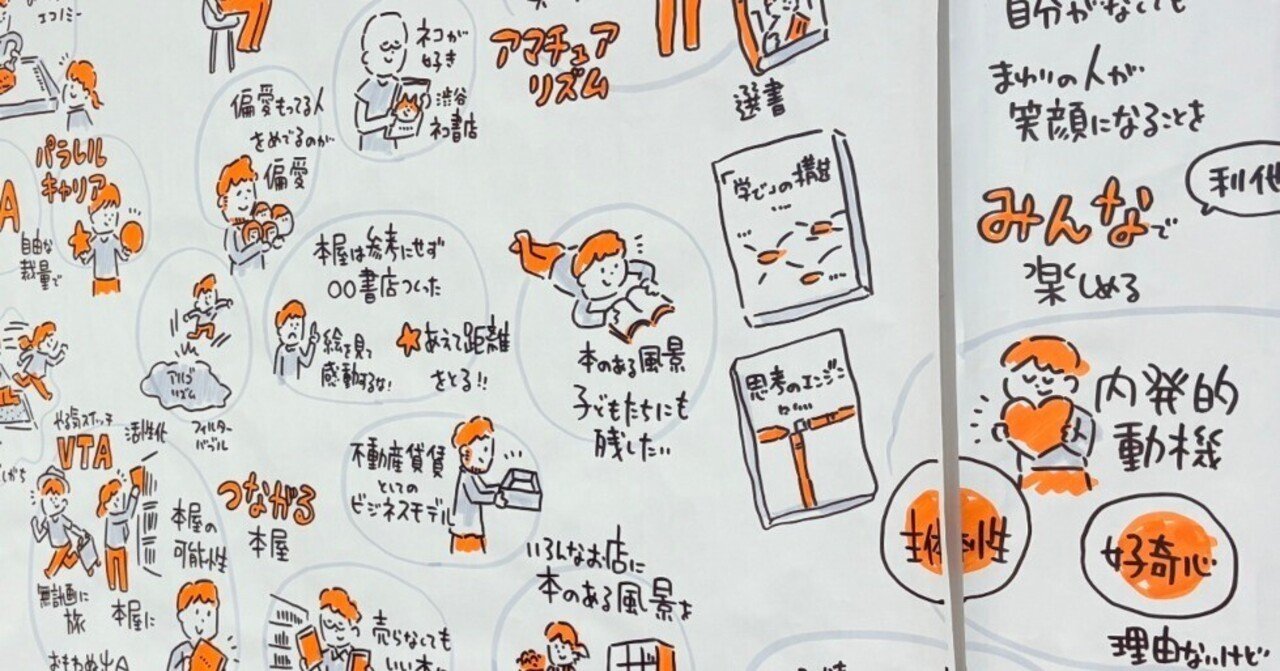 エコノミー
パラレル
キャリア
自由な
裁量で
偏愛もってる人
をめでるのが
偏愛
ネコが
好き
渋谷
ネコ書店
アマチュア
リズム
選書
本屋は参考にせず
〇〇書店つくった
絵を見て
感動するな!
★あえて距離
をとる!!
アルゴ
リズム
フィルター
バブル
やる気スイッチ
VTA
活性化
本屋の
可能性
無計画に
旅
本屋に
つながる
本屋
不動産賃貸
としての
ビジネスモデル
本のある風景
子どもたちにも
残したい
「学び」の構造
思考のエンジン
いろんなお店に
本のある風景を
売らなくても
いい本
自分がなくても
まわりの人が
笑顔になることを
利他
みんなで
楽しめる
内発的
動機
主体性
好奇心
理由ないけど